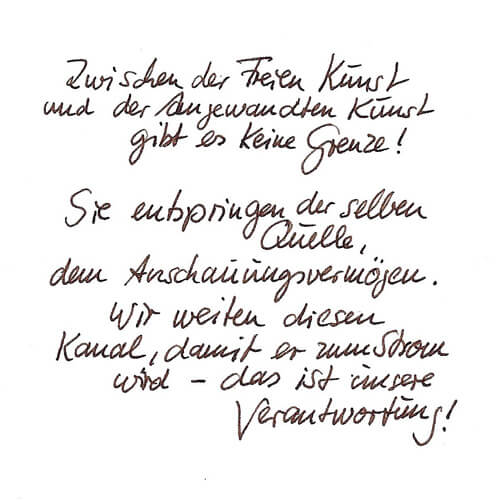 Zwischen der Freien Kunst
und der Angewandten Kunst
gibt es keine Grenze!
Sie entspringen der selben
Quelle,
dem Anschauungsvermögen.
Wir weiten diesen
Kanal, damit er zum Strom
wird – das ist unsere
Verantwortung!